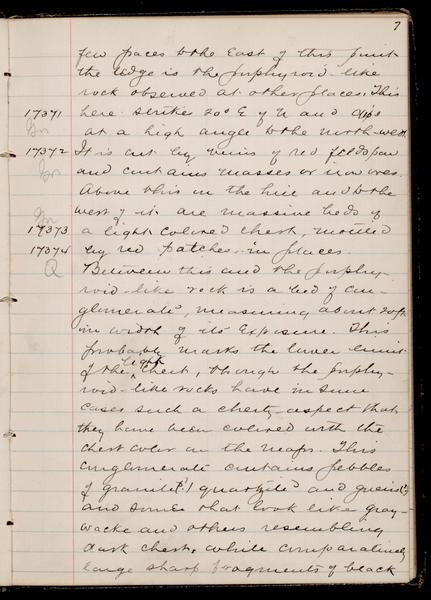 7
few paces to the East of this point
the ledge is the porphyroid-like
rock observed at other places. This
17371 here strikes 20° E of N and dips
Gr at a high angle to the north-west
17372 It is cut by veins of red feldspar
Gr and contains masses or iron ores.
Above this in the hill and to the
Gr west of it are massive beds of
17373 a light colored chert, mottled
17374 by red patches in places.
Q Between this and the porphy-
roid-like rock is a bed of con-
glomerate, measuring about 20 ft
in width of its exposure. This
probably marks the lower limit
of the light chert, though the porphy-
roid-like rocks have in some
cases such a cherty aspect that
they have been colored with the
chert color on the maps. This
conglomerate contains pebbles
of granite (?) quartzite and gneiss (?)
and some that look like gray-
wacke and others resembling
dark chert, while comparatively
large sharp fragments of black